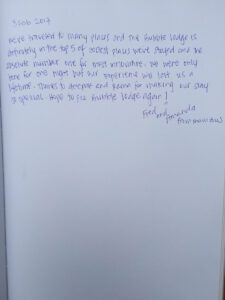 5 Feb 2017
We've traveled to many places and the Bubble Lodge is
definitely in the top 5 of coolest places we've stayed and the
absolute number one for most innovative. We were only
here for one night but our experience will last us a
lifetime. Thanks to and for making our stay
so special. Hope to see Bubble Lodge again!
Fred and
Amanda